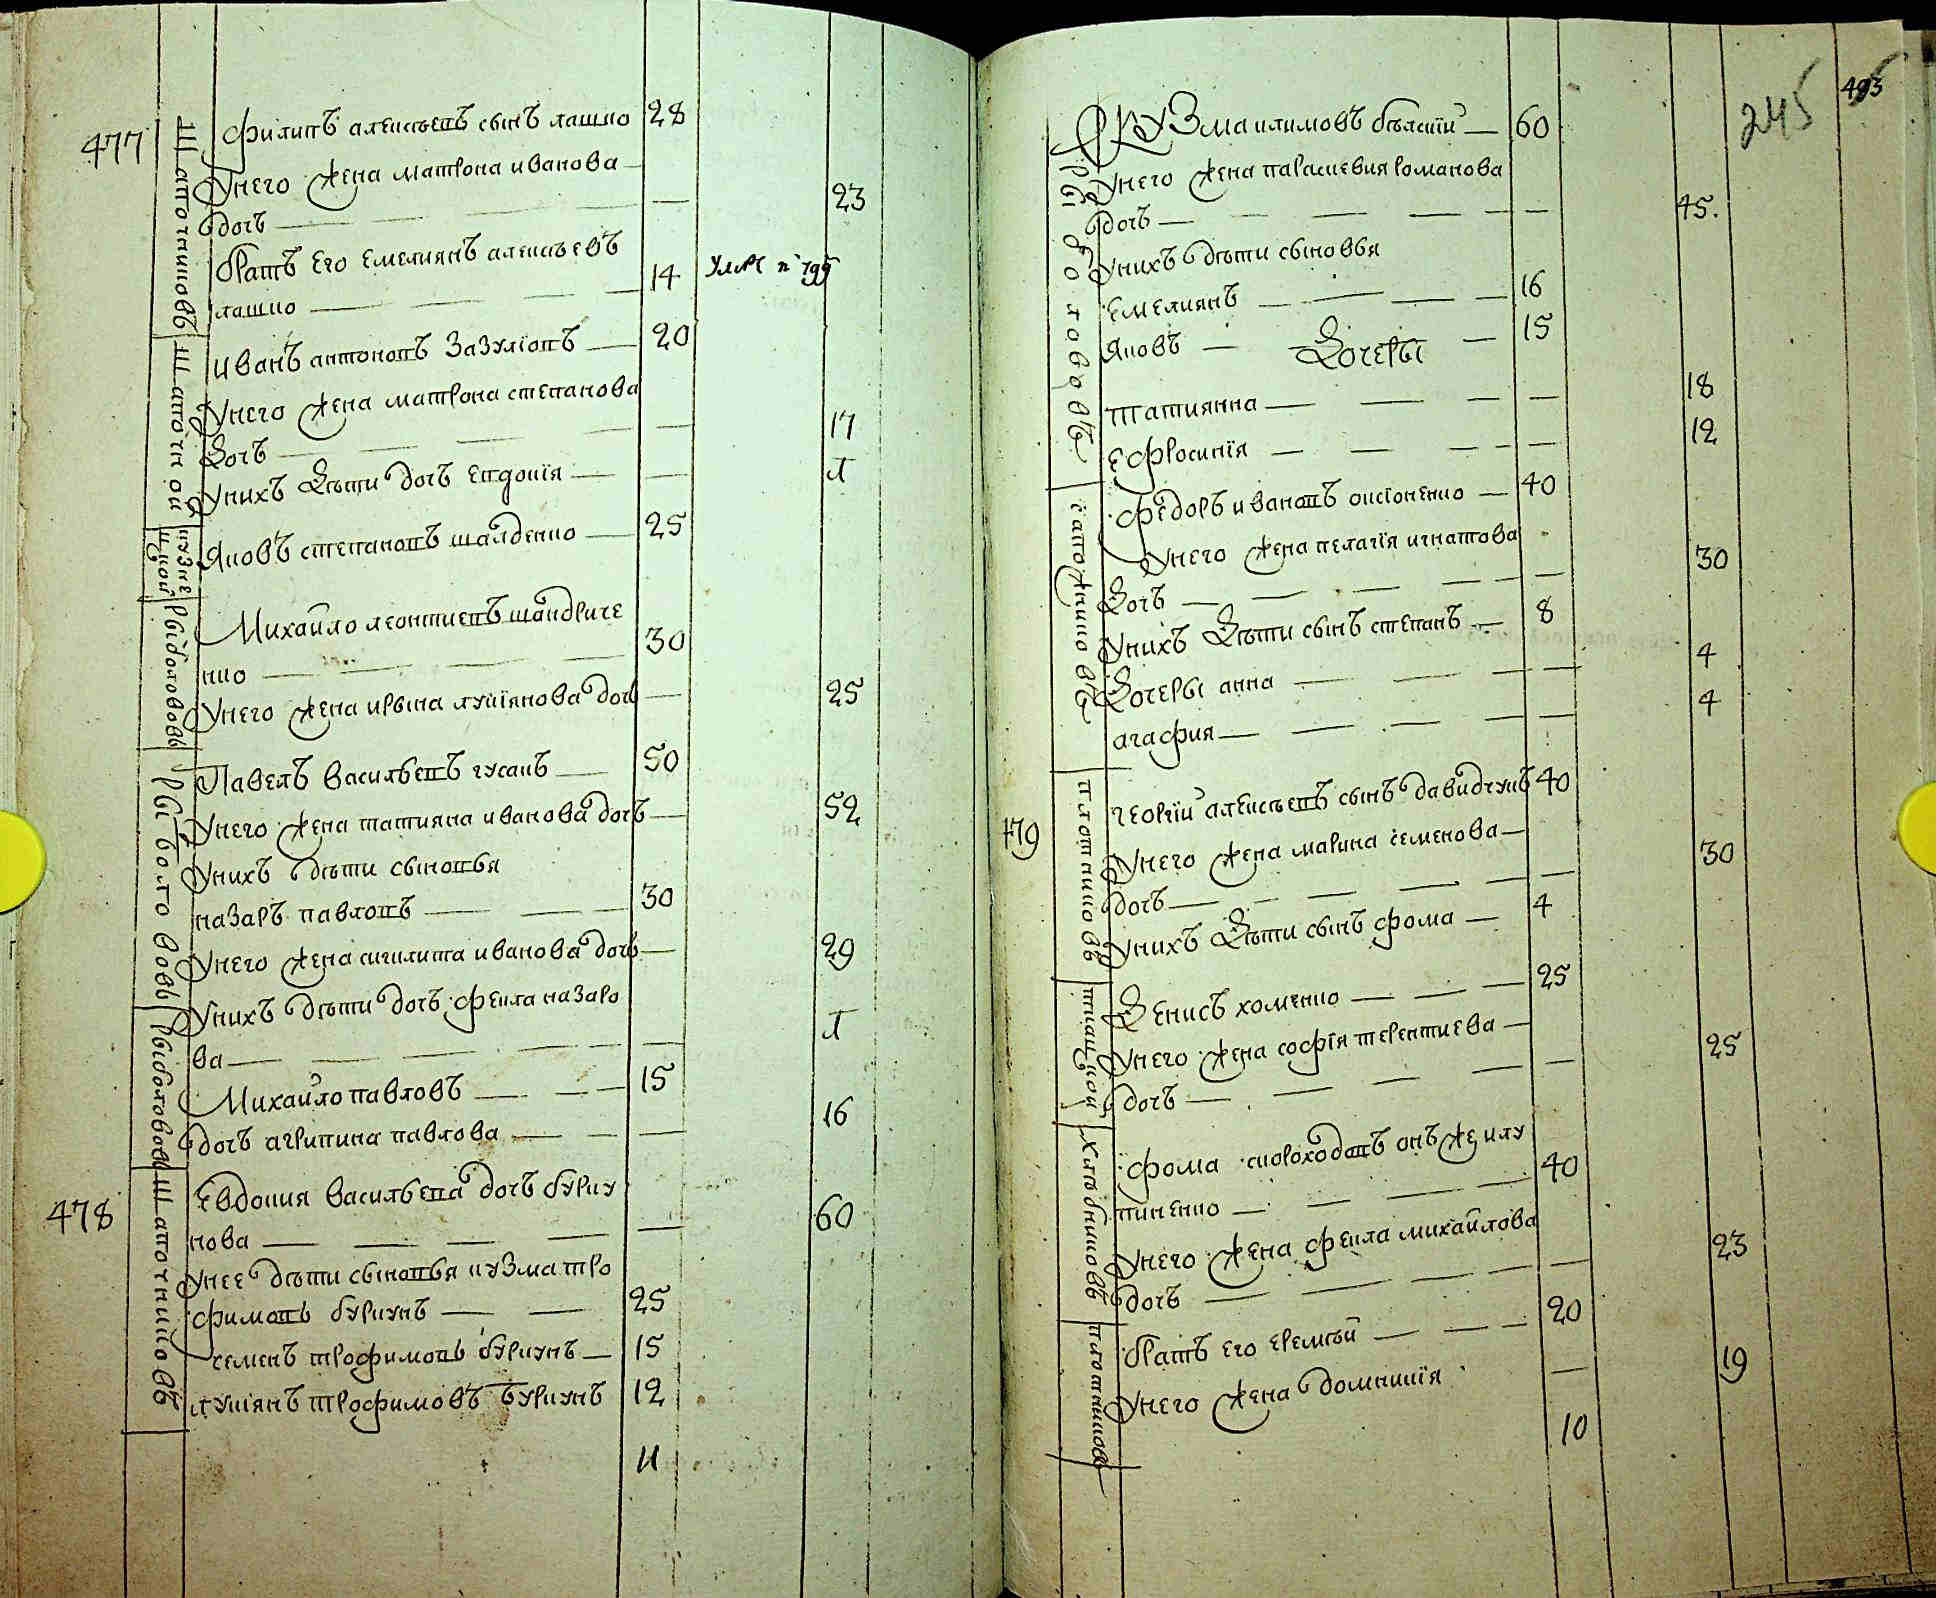 477
Шапочниковъ
филипъ алексѣевъ сынъ лашко 28
Унего жена матрона иванова
дочь 23
братъ его емелиянъ алексѣевъ
лашко 14
Шапочной
иванъ антоновъ зазуліовъ 20
Унего жена матрона степанова
дочь 17
Унихъ дѣти дочь евдокія л
кузнешной
яковъ степановъ шалденко 25
рыболововъ
Михайло леонтиевъ шандриче
нко 30
Унего жена ирына лукіянова дочь 25
рыболововъ
Павелъ васильевъ гусакъ 50
Унего жена татияна иванова дочь 52
Унихъ дѣти сыновья
назаръ павловъ 30
Унего жена сикилита иванова дочь 29
Унихъ дѣти дочь фекла назаро
ва л
рыболововъ
Михайло павловъ 15
дочь агрипина павлова 16
478
Шапочниковъ
евдокия васильева дочь бурку
нова 60
Унее дѣти сыновья кузма тро
фимовъ буркунъ 25
семенъ трофимовъ буркунъ 15
лукіянъ трофимовъ буркунъ 12
11
495
245
рыболововъ
Кузма климовъ бѣлскій 60
Унего жена параскевия романова
дочь 45.
Унихъ дѣти сыновья
емелиянъ 16
яковъ 15
Дочеры
татиянна 18
ефросинія 12
сапожниковъ
федоръ ивановъ оксіоненко 40
Унего жена пелагія игнатова
дочь 30
Унихъ дѣти сынъ степанъ 8
Дочеры анна 4
агафия 4
479
плотниковъ
георгій алексѣевъ сынъ давидчукъ 40
Унего жена марина семенова
дочь 30
Унихъ дѣти сынъ фома 4
ткацкой
Денисъ хоменко 25
Унего жена софія терентиева
дочь 25
хлѣбниковъ
фома скороходовъ онъже илу
пиненко 40
Унего жена фекла михайлова
дочь 23
плотниковъ
братъ его еремѣй 20
Унего жена домникія 19
10